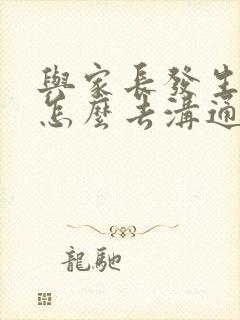 與家長發生
怎麼去溝通
龍馳